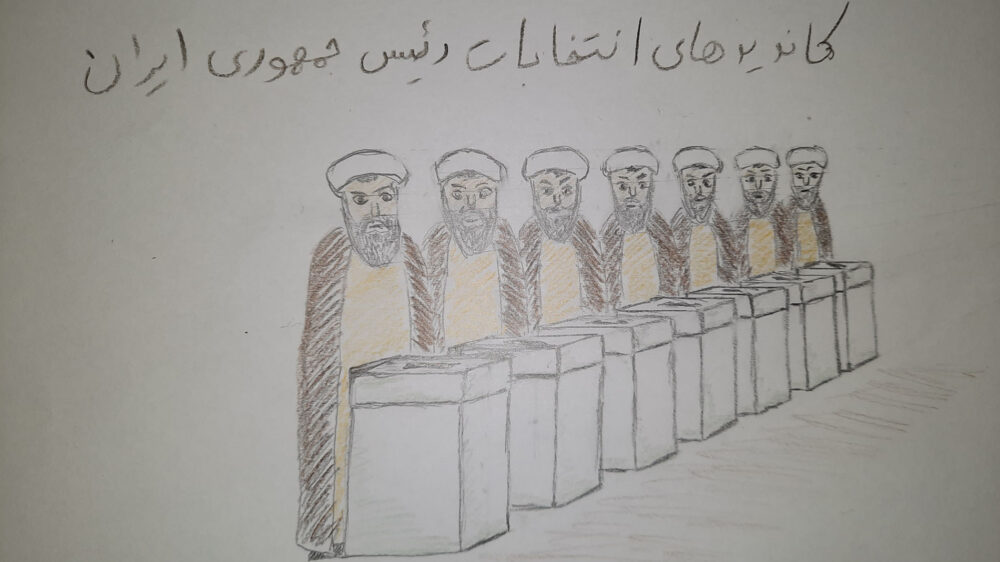 کاندیدهای انتخابات رئیس جمهوری ایران